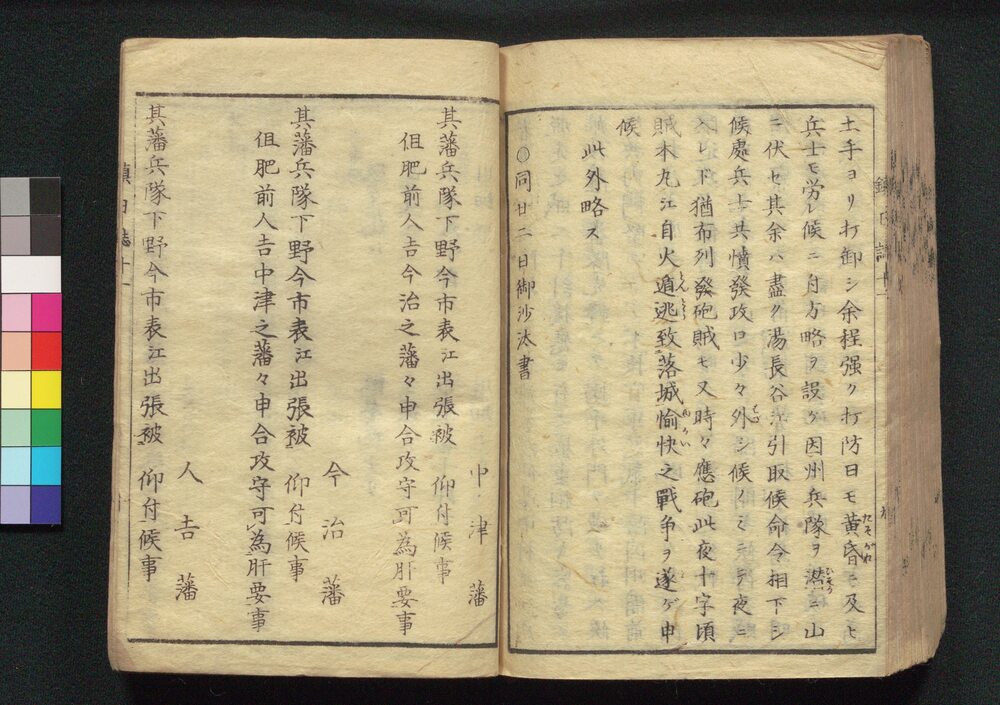 土手ヨリ打御シ余程强ク打防日モ黄昏ニ及ヒ
兵士モ労レ候ニ付方略ヲ設ケ因州兵隊ヲ潜ニ山
ニ伏セ其余ハ盡ク湯長谷江引取候命令相下シ
候處兵士共憤發攻口少々外シ候ノミニテ夜ニ
入レド猶布列發砲賊モ又時々應砲此夜十字頃
賊本丸江自火遁逃致落城愉快之戰争ヲ遂ゲ申
候
此外略ス
○同廿二日御沙汰書
中津藩
其藩兵隊下野今市表江出張被 仰付候事
但肥前人吉今治之藩々申合攻守可為肝要事
今治藩
其藩兵隊下野今市表江出張被 仰付候事
但肥前人吉中津之藩々申合攻守可為肝要事
人吉藩
其藩兵隊下野今市表江出張被 仰付候事